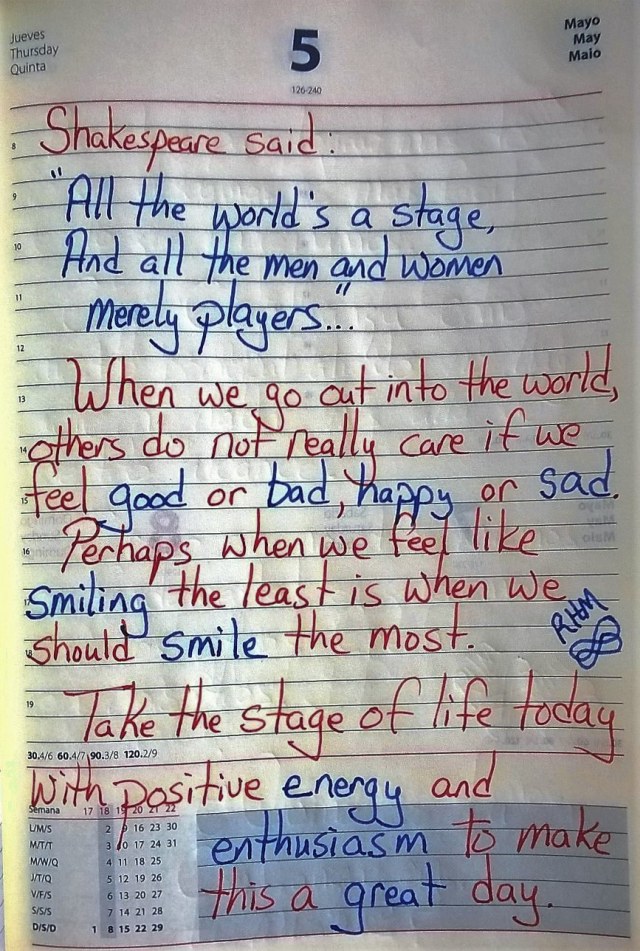 Jueves
Thursday
Quinta
5
126-240
Mayo
May
Maio
8 Shakespeare said:
9 "All the world's a stage,
10 And all the men and women
11 merely players..."
12
13 When we go out into the world,
14 others do not really care if we
15 feel good or bad, happy or sad.
16 Perhaps when we feel like
smiling the least is when we
should smile the most.
RHM
19 Take the stage of life today
30.4/6 60.4/7 90.3/8 120.2/9
with positive energy and
Semana 17 18 19 20 21 22
L/M/S 2 9 16 23 30
M/T/T 3 10 17 24 31
M/W/Q 4 11 18 25
J/T/Q 5 12 19 26
V/F/S 6 13 20 27
S/S/S 7 14 21 28
D/S/D 1 8 15 22 29
enthusiasm to make
this a great day.